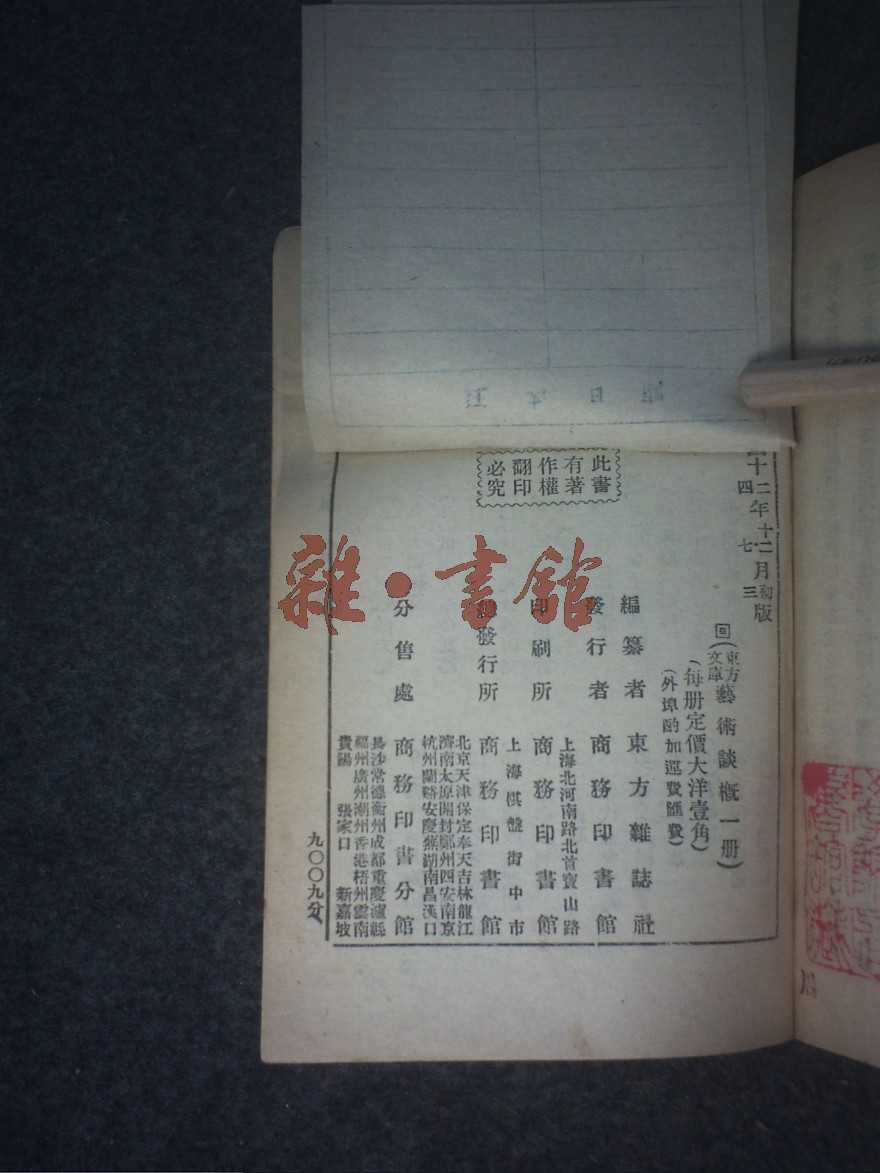 國十二年十二月初版
四 七 三
回(東方文庫)藝術談概一册)
(每册定價大洋壹角)
(外埠酌加運費匯費)
此書
有著
作權
翻印
必究
編纂者 東方雜誌社
發行者 商務印書館
上海北河南路北首寶山路
印刷所 商務印書館
上海棋盤街中市
發行所 商務印書館
北京天津保定奉天吉林龍江
濟南太原開封鄭州西安南京
杭州蘭谿安慶蕪湖南昌漢口
分售處 商務印書分館
長沙常德衡州成都重慶瀘縣
福州廣州潮州香港梧州雲南
貴陽 張家口 新嘉坡
九〇〇九分
雜·書館